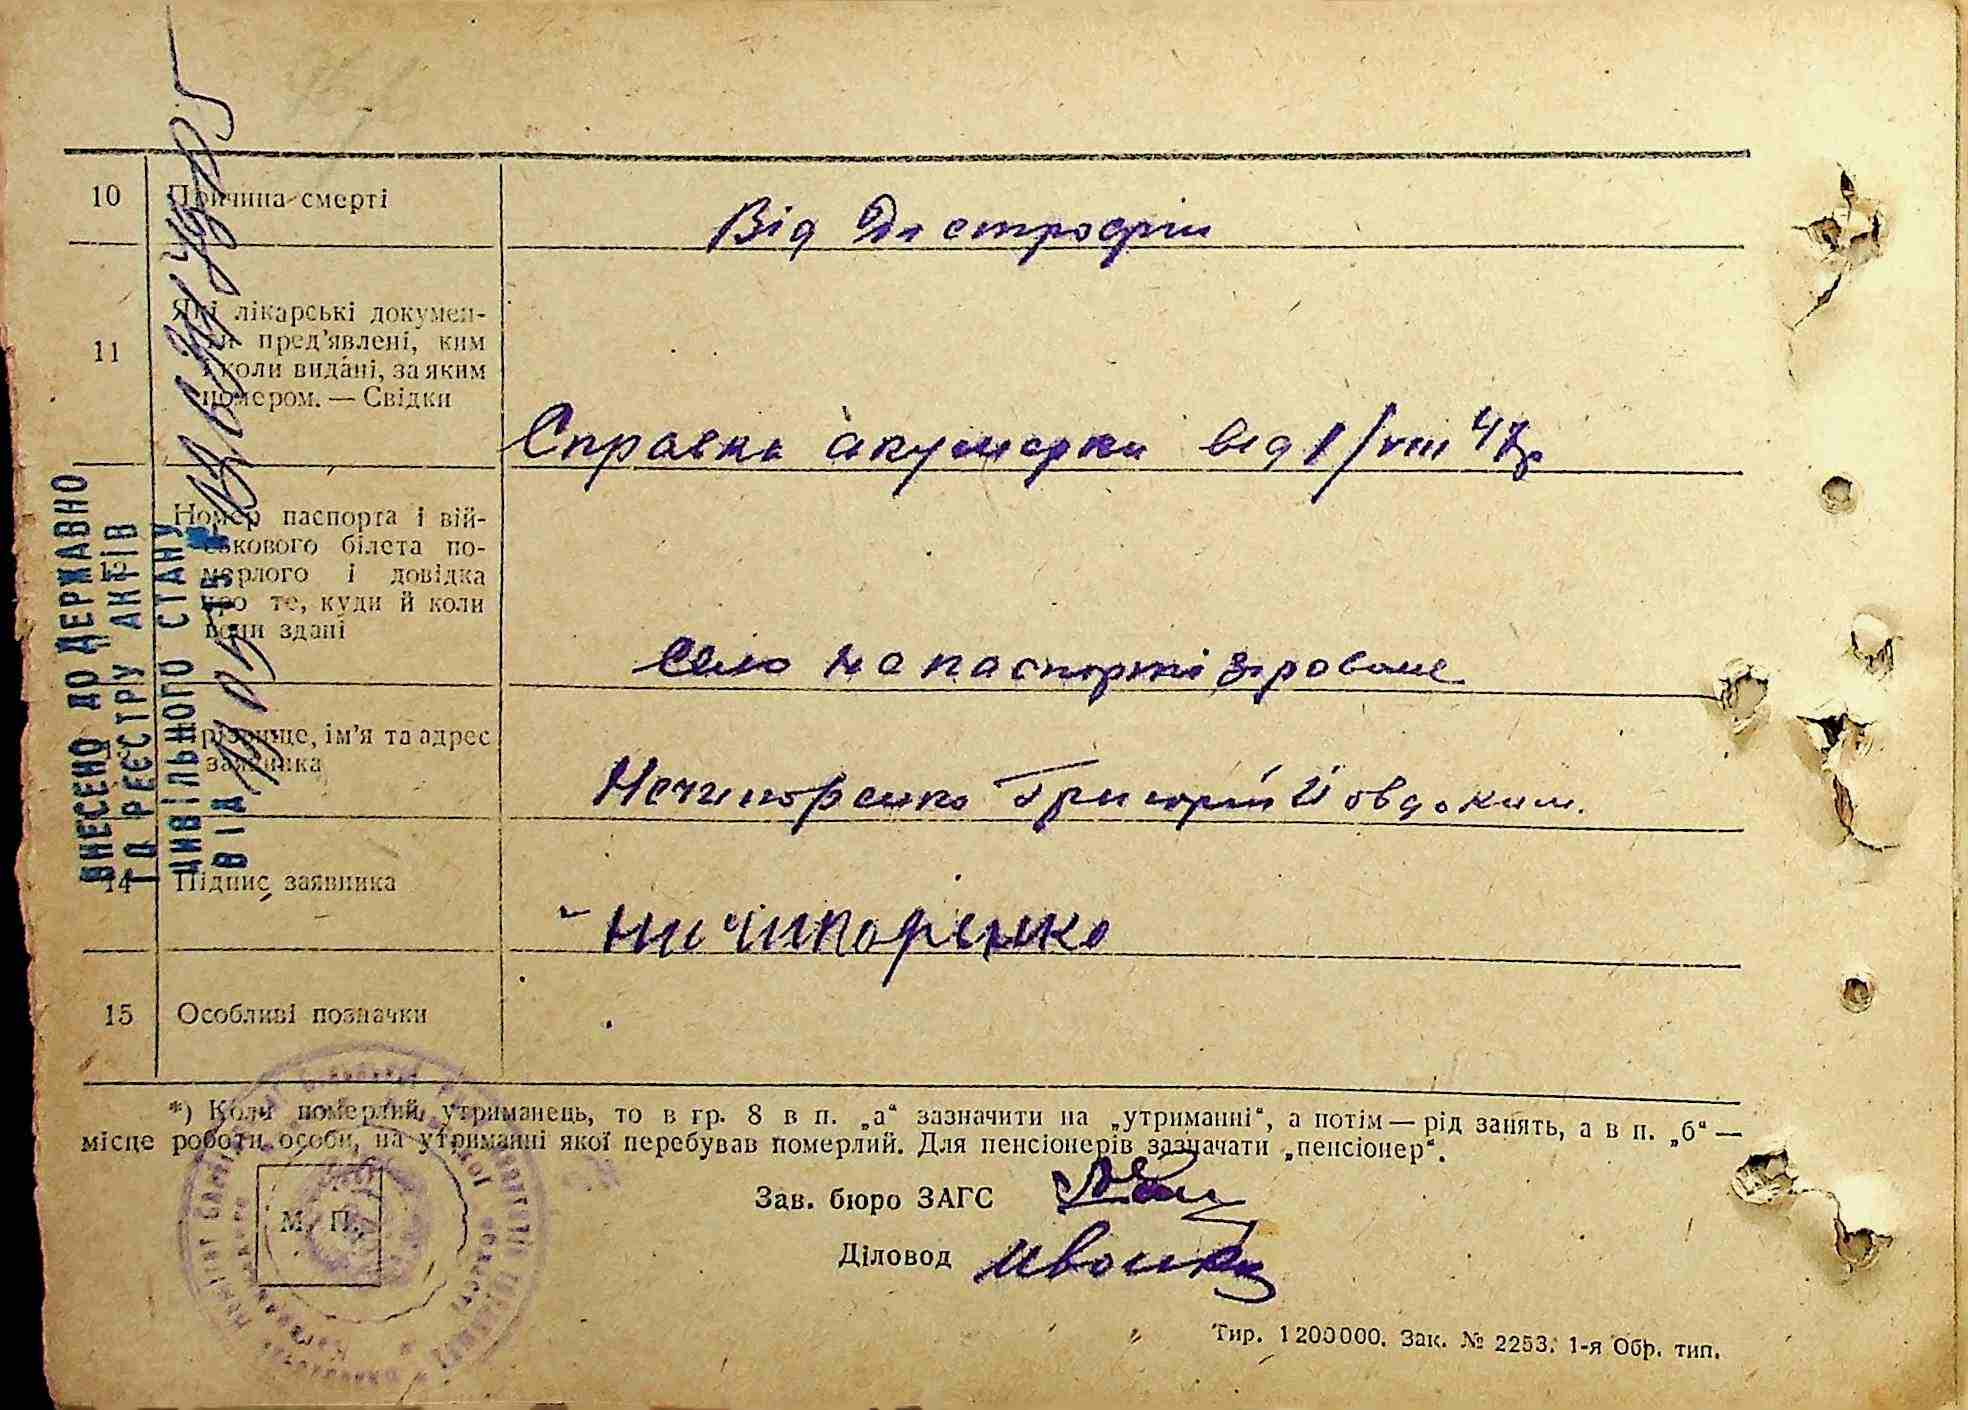 10 Причина смерті
Від Дистрофіи
11 Які лікарські докумен-
ти пред'явлені, ким
і коли видані, за яким
номером. — Свідки
Справка акушерки від 1/VIII 47р
Номер паспорта і вій-
ськового білета по-
мерлого і довідка
про те, куди й коли
вони здані
Село не паспортізіроване
Прізвище, ім'я та адрес
заявника
Нечипоренко Григорій Йовдоким.
14 Підпис заявника
Ничипоренко
15 Особливі позначки
ВНЕСЕНО ДО ДЕРЖАВНО
ГО РЕЄСТРУ АКТІВ
ЦИВІЛЬНОГО СТАНУ
ВІД
*) Коли померлий утриманець, то в гр. 8 в п. „а“ зазначити на „утриманні“, а потім — рід занять, а в п. „б“ —
місце роботи особи, на утриманні якої перебував померлий. Для пенсіонерів зазначати „пенсіонер“.
М. П.
Зав. бюро ЗАГС
Діловод
Тир. 1200000. Зак. № 2253. 1-я Обр. тип.